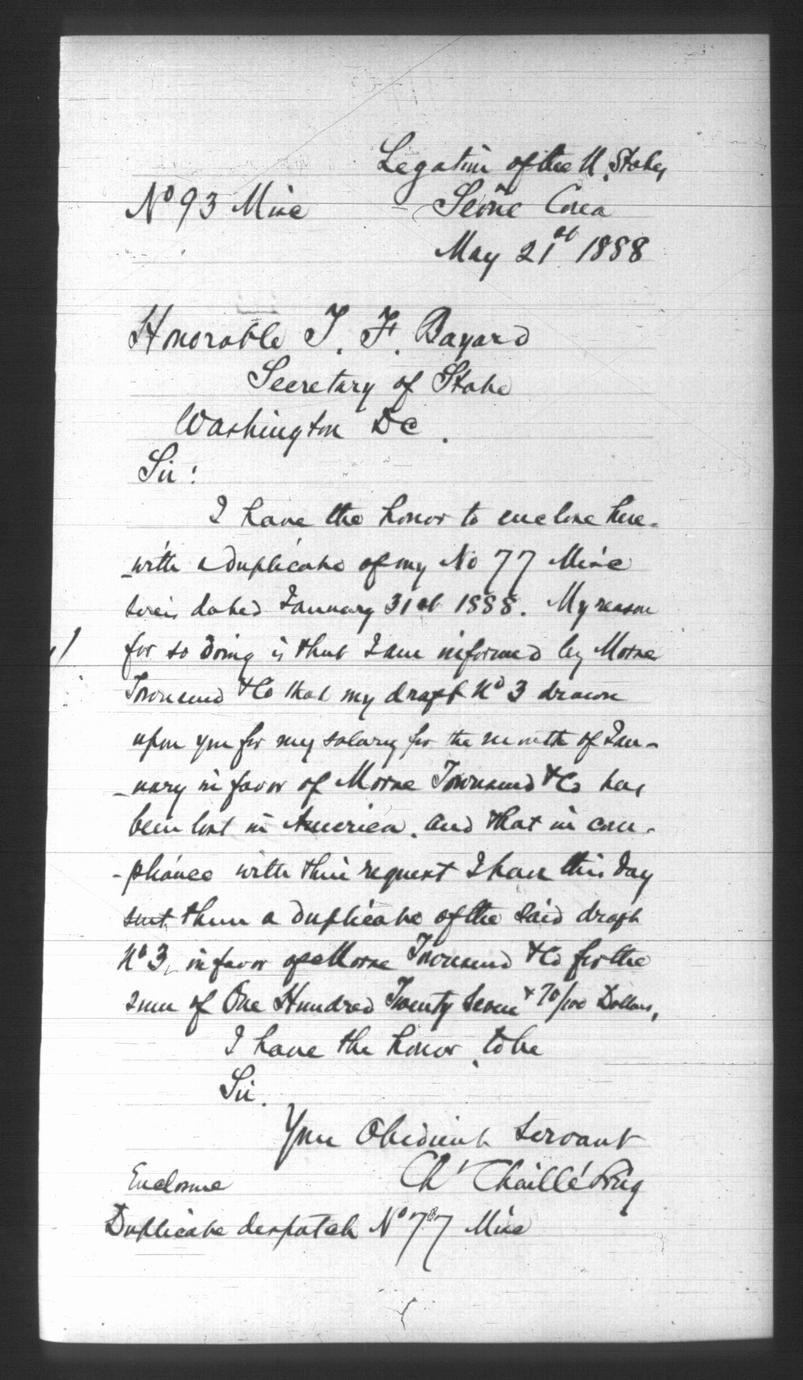 Legation of the U. States
No 93 Misc Seoul Corea
May 21st 1888
Honorable T. F. Bayard
Secretary of State
Washington DC.
Sir:
I have the honor to enclose here-
-with a duplicate of my No 77 Misc
series dated January 31st 1888. My reason
for so doing is that I am informed by Morse
Townsend & Co that my draft No 3 drawn
upon you for my salary for the month of Jan-
-uary in favor of Morse Townsend & Co has
been lost in America, and that in com-
-pliance with their request I have this day
sent them a duplicate of the said draft
No 3, in favor of Morse Townsend & Co for the
sum of One Hundred Twenty Seven & 70/100 Dollars,
I have the honor to be
Sir.
Your Obedient Servant
Ch' Chaillé Long
Enclosure
Duplicate despatch No 77 Misc